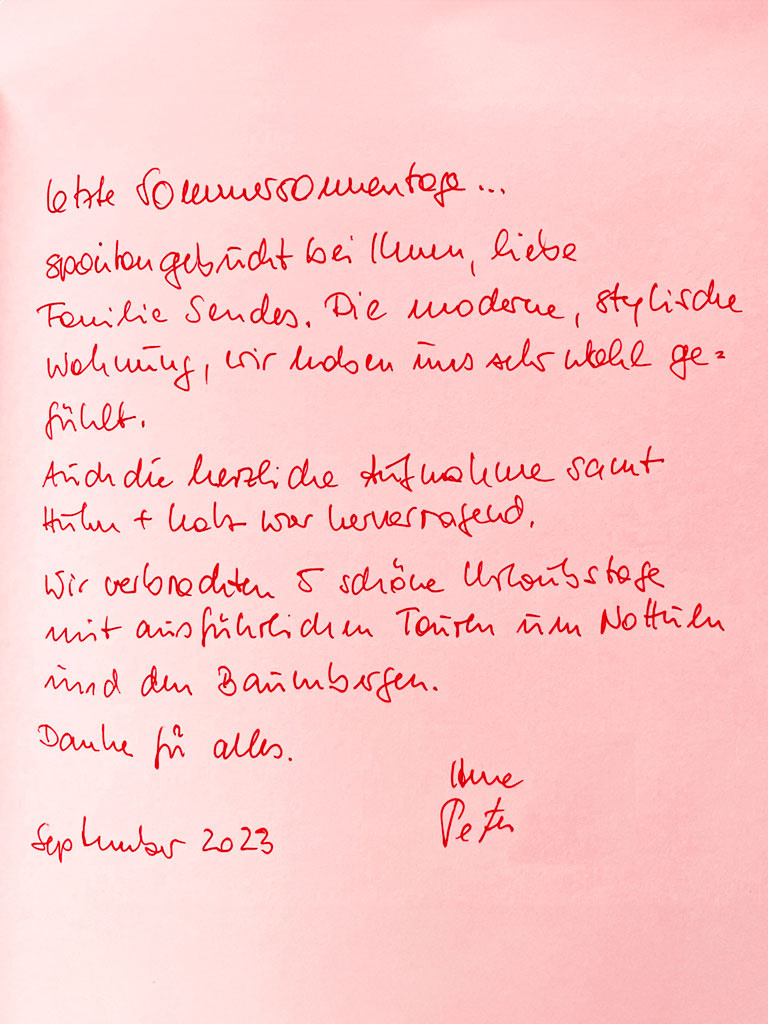 letzte Sommersonnentage...
spontan gebucht bei Ihnen, liebe
Familie Sendes. Die moderne, stylische
Wohnung, wir haben uns sehr wohl ge=
fühlt.
Auch die herzliche Aufnahme samt
Huhn + Katz war hervorragend.
Wir verbrachten 5 schöne Urlaubstage
mit ausführlichen Touren um Nottuln
und den Baumbergen.
Danke für alles.
Peter
September 2023